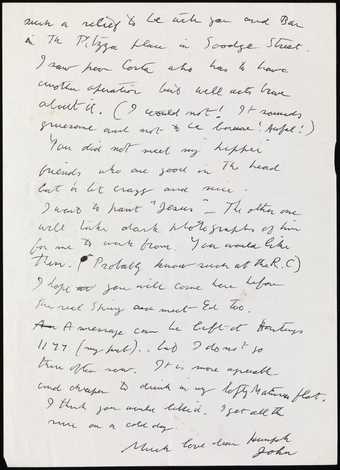 such a relief to be with you and Bar
in The Pizza place in Goodge Street.
I saw poor Costa who has to have
another operation but will acts brave
about it. (I would not! It sounds
gruesome and not to be borne! Awful!)
You did not meet my "hippie"
friends who are good in the head
but a bit crazy and nice.
I want to paint "Jesus" – The other one
will take dark photographs of him
for me to work from. You would like
them. (Probably know such at the R.C)
I hope you will come here before
the real Spring and meet Ed too.
A message can be left at
1177 (my pub).. but I do not go
there often now. It is more agreeable
and cheaper to drink in my lofty flat.
I think you would like it. I get all the
sun on a cold day.
Much love dear
John